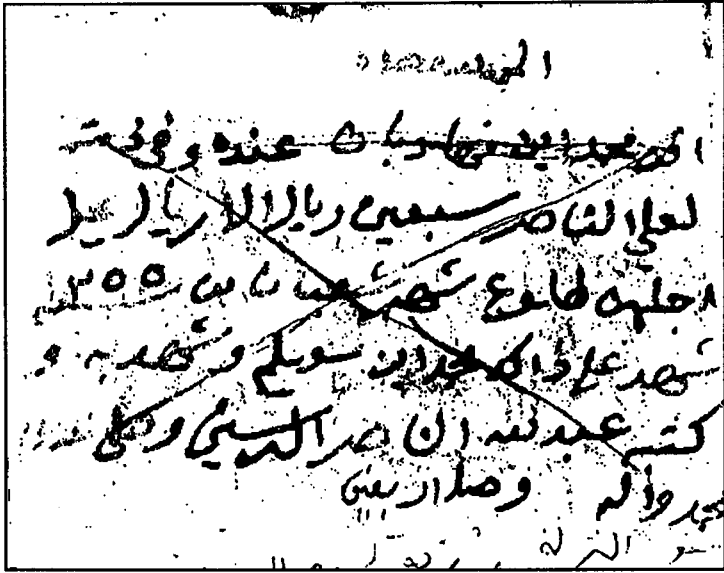 الحمد لله
اقر محمد ابن بان عنده وفي ذمته
لعلي الناصر سبعين ريال الا ريال يحل
اجلهن طلوع شهر شعبان من ١٣٥٥
شهد على ذالك محمد ابن سويلم وشهد به و
كتبه عبدلله ان صر وصلى
محمد واله وصل اربعين